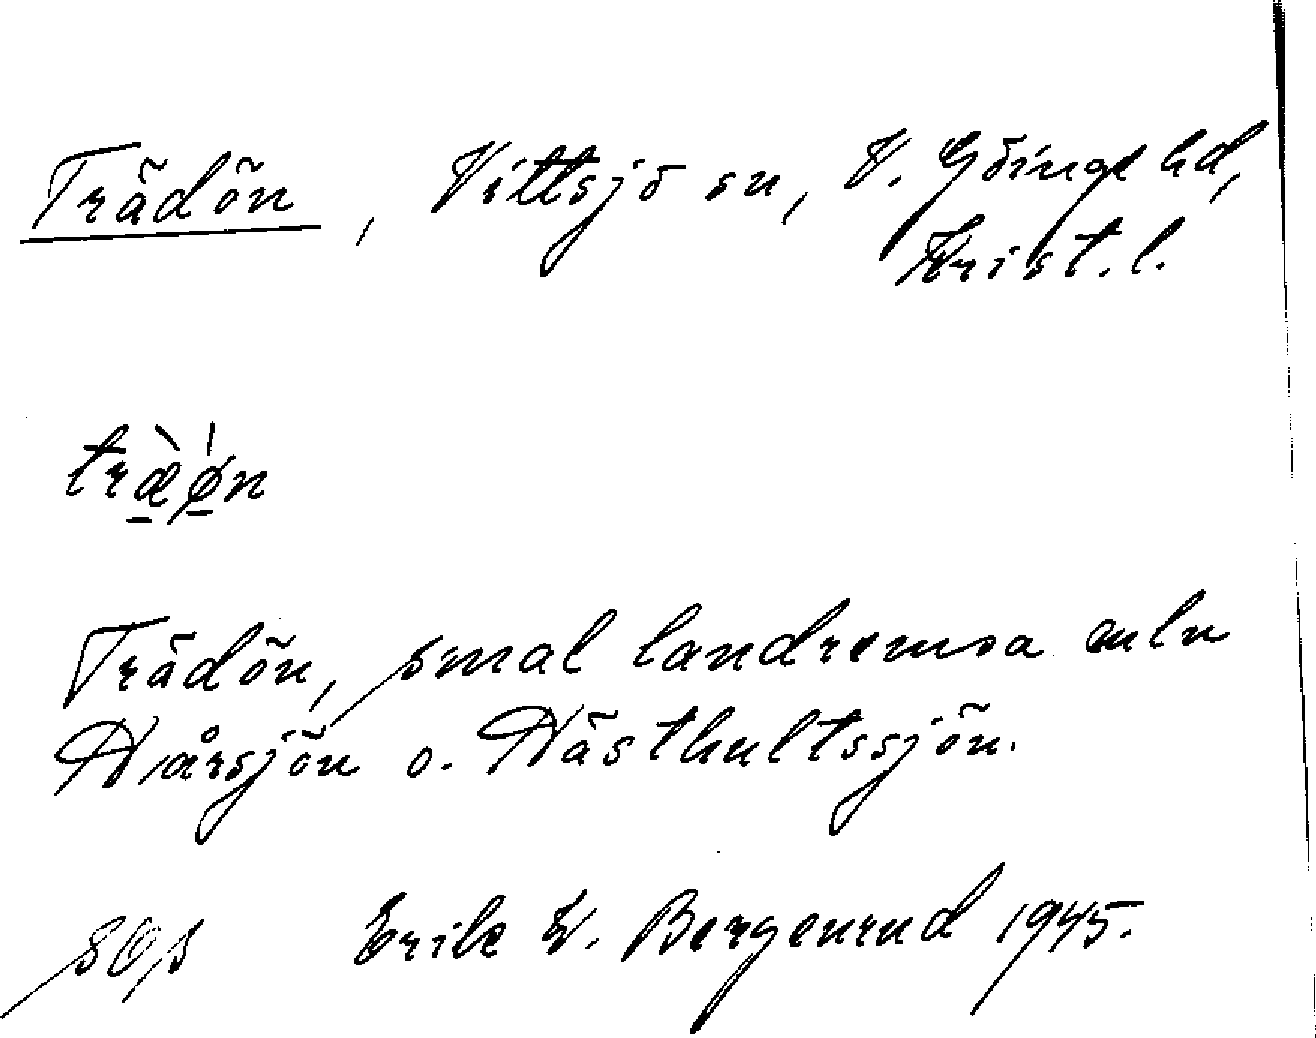 Trädön, Vittsjö sn, V. Göinge hd,
Krist. l.
træ̀ǿn
Trädön, smal landremsa mln
Hårsjön o. Hästhultssjön.
Erik W. Bergenrud 1945.